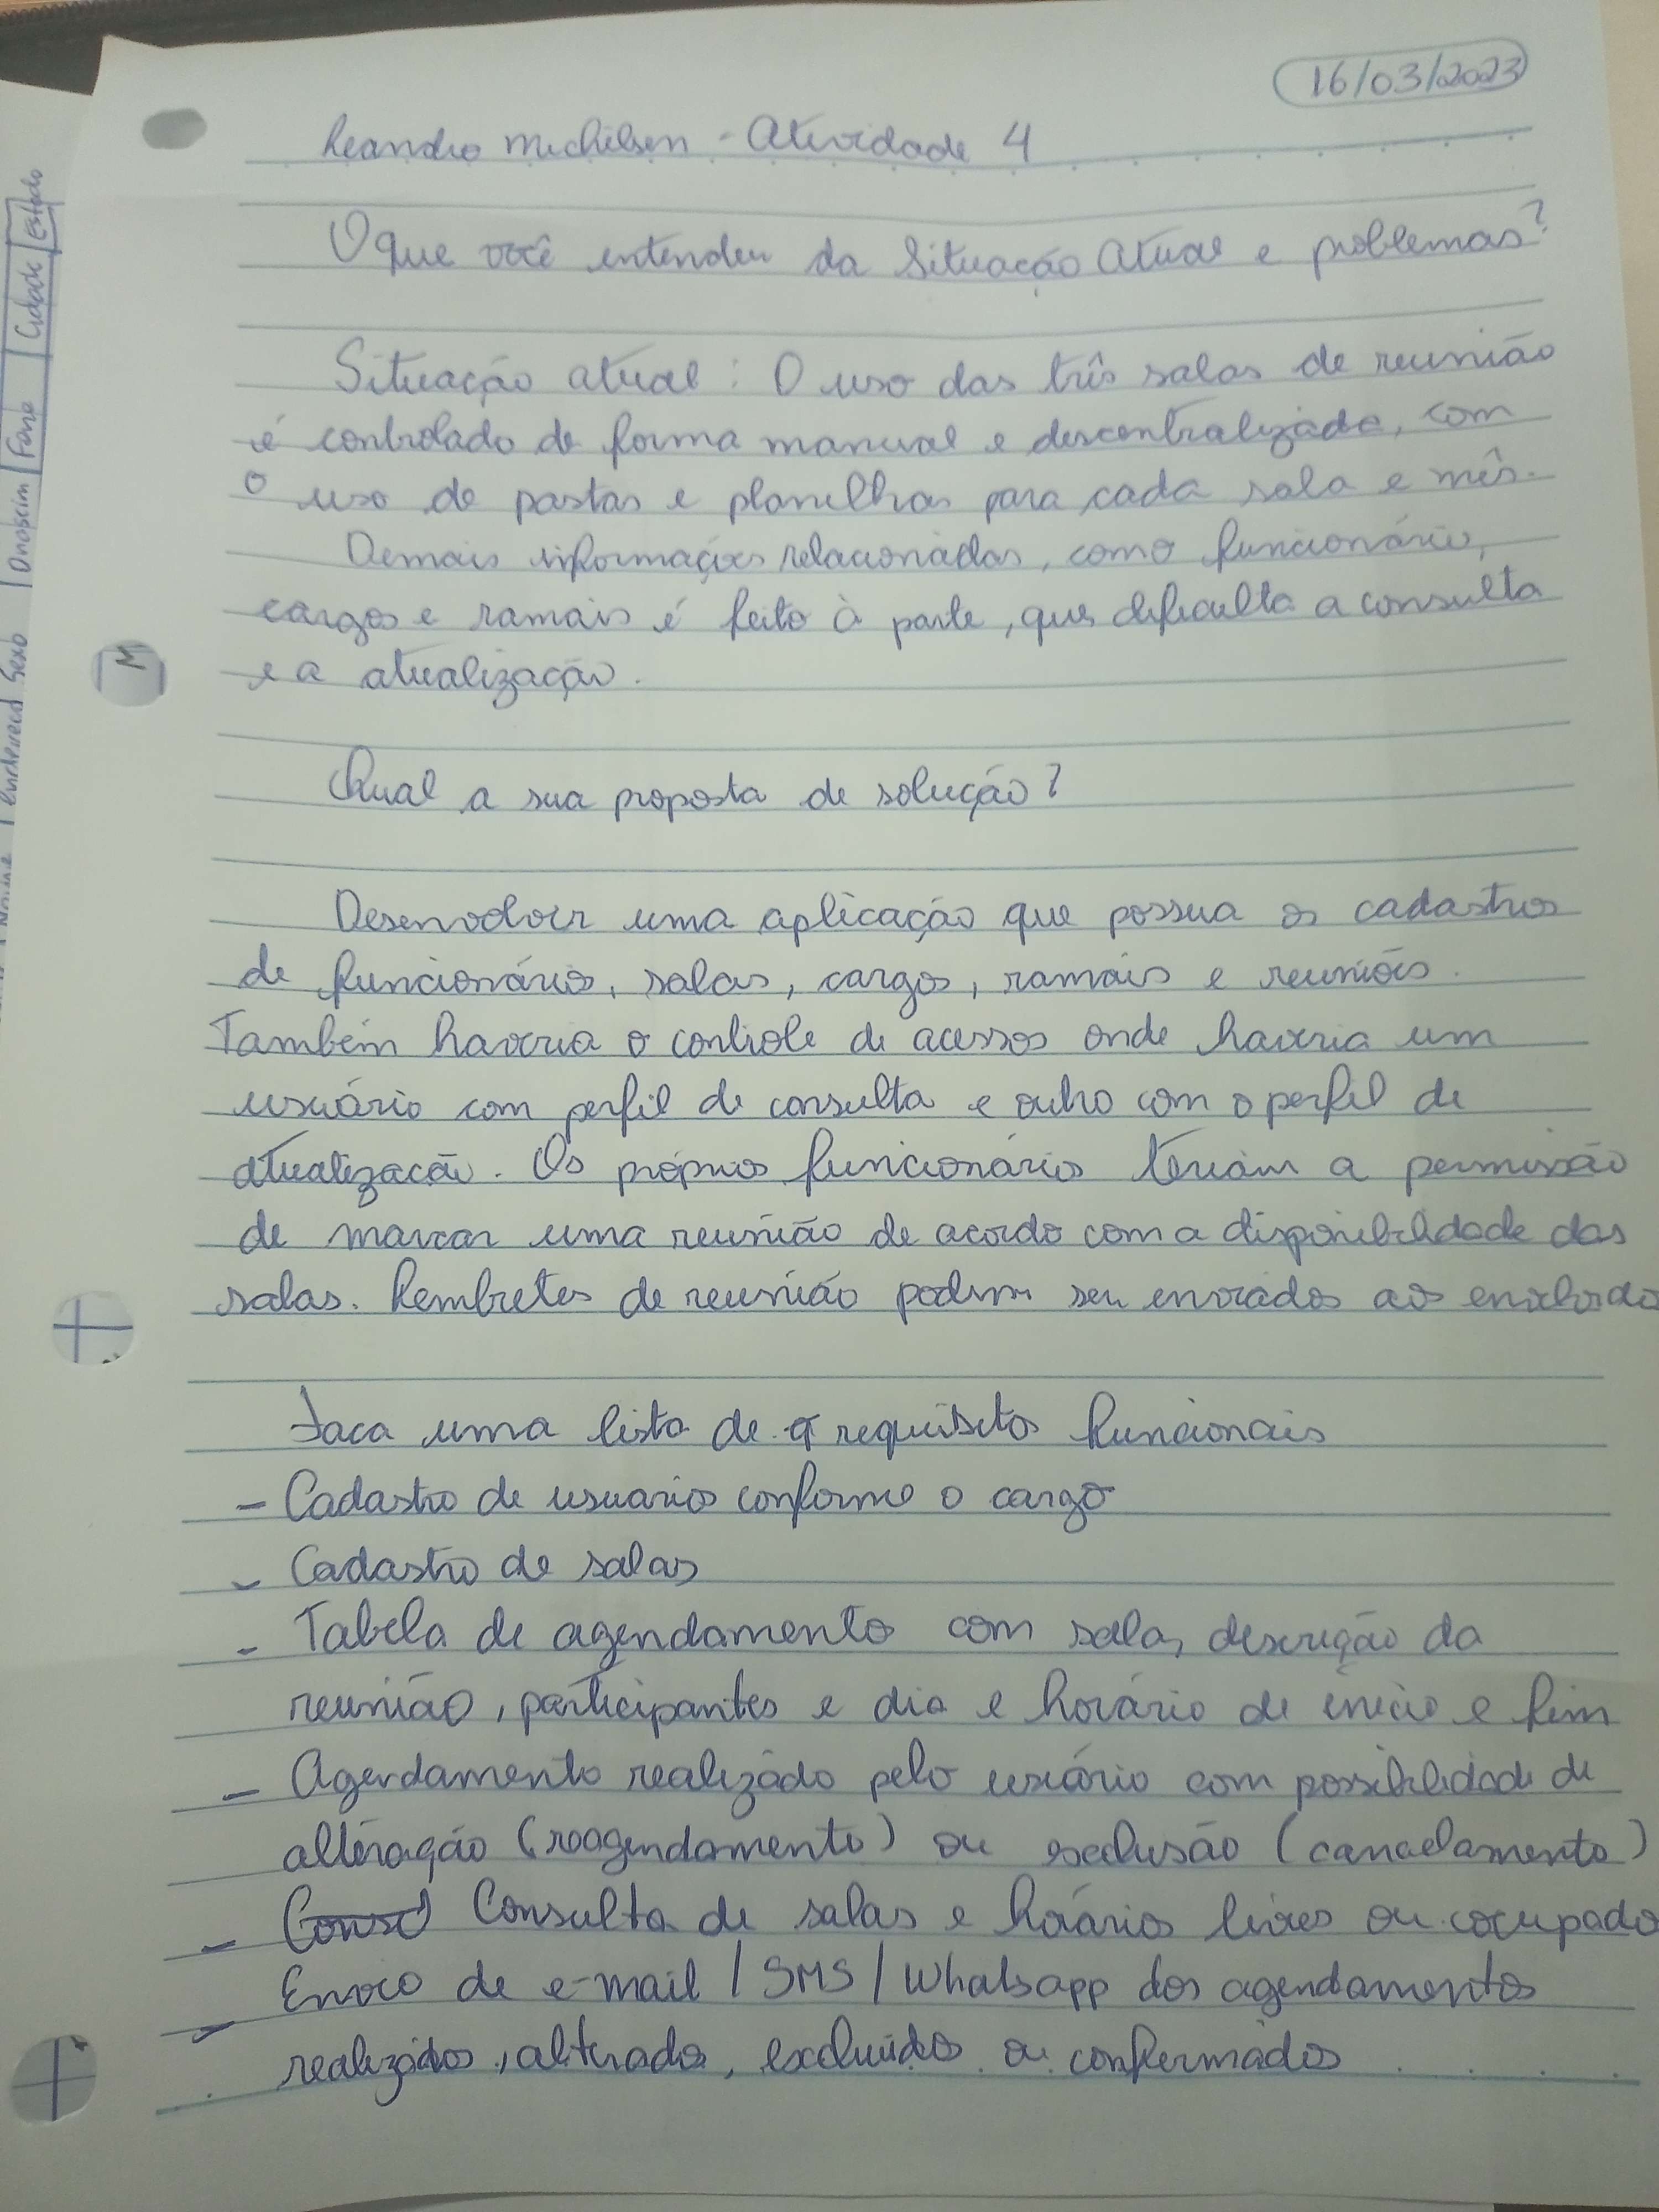 16/03/2023
Leandro Michelsen - Atividade 4
O que você entendeu da Situação Atual e problemas?
Situação atual: O uso das três salas de reunião
é controlado de forma manual e descentralizada, com
o uso de pastas e planilhas para cada sala e mês.
Demais informações relacionadas, como funcionário,
cargos e ramais é feito à parte, que dificulta a consulta
e a atualização.
Qual a sua proposta de solução?
Desenvolver uma aplicação que possua os cadastros
de funcionários, salas, cargos, ramais e reuniões.
Também haveria o controle de acessos onde haveria um
usuário com perfil de consulta e outro com o perfil de
atualização. Os próprios funcionários teriam a permissão
de marcar uma reunião de acordo com a disponibilidade das
salas. Lembretes de reunião podem ser enviados aos
Faca uma lista de requisitos funcionais
- Cadastro de usuarios conforme o cargo
- Cadastro de salas
- Tabela de agendamento com sala, descrição da
reunião, participantes e dia e horário de início e fim
- Agendamento realizado pelo usuário com possibilidade de
alteração (reagendamento) ou exclusão (cancelamento)
- Consulta de salas e horários livres ou ocupado
- Envio de e-mail / SMS / Whatsapp dos agendamentos
realizados, alterados, excluídos ou confirmados
Estado
Cidade
Fone
Dnascim
Sexo
M